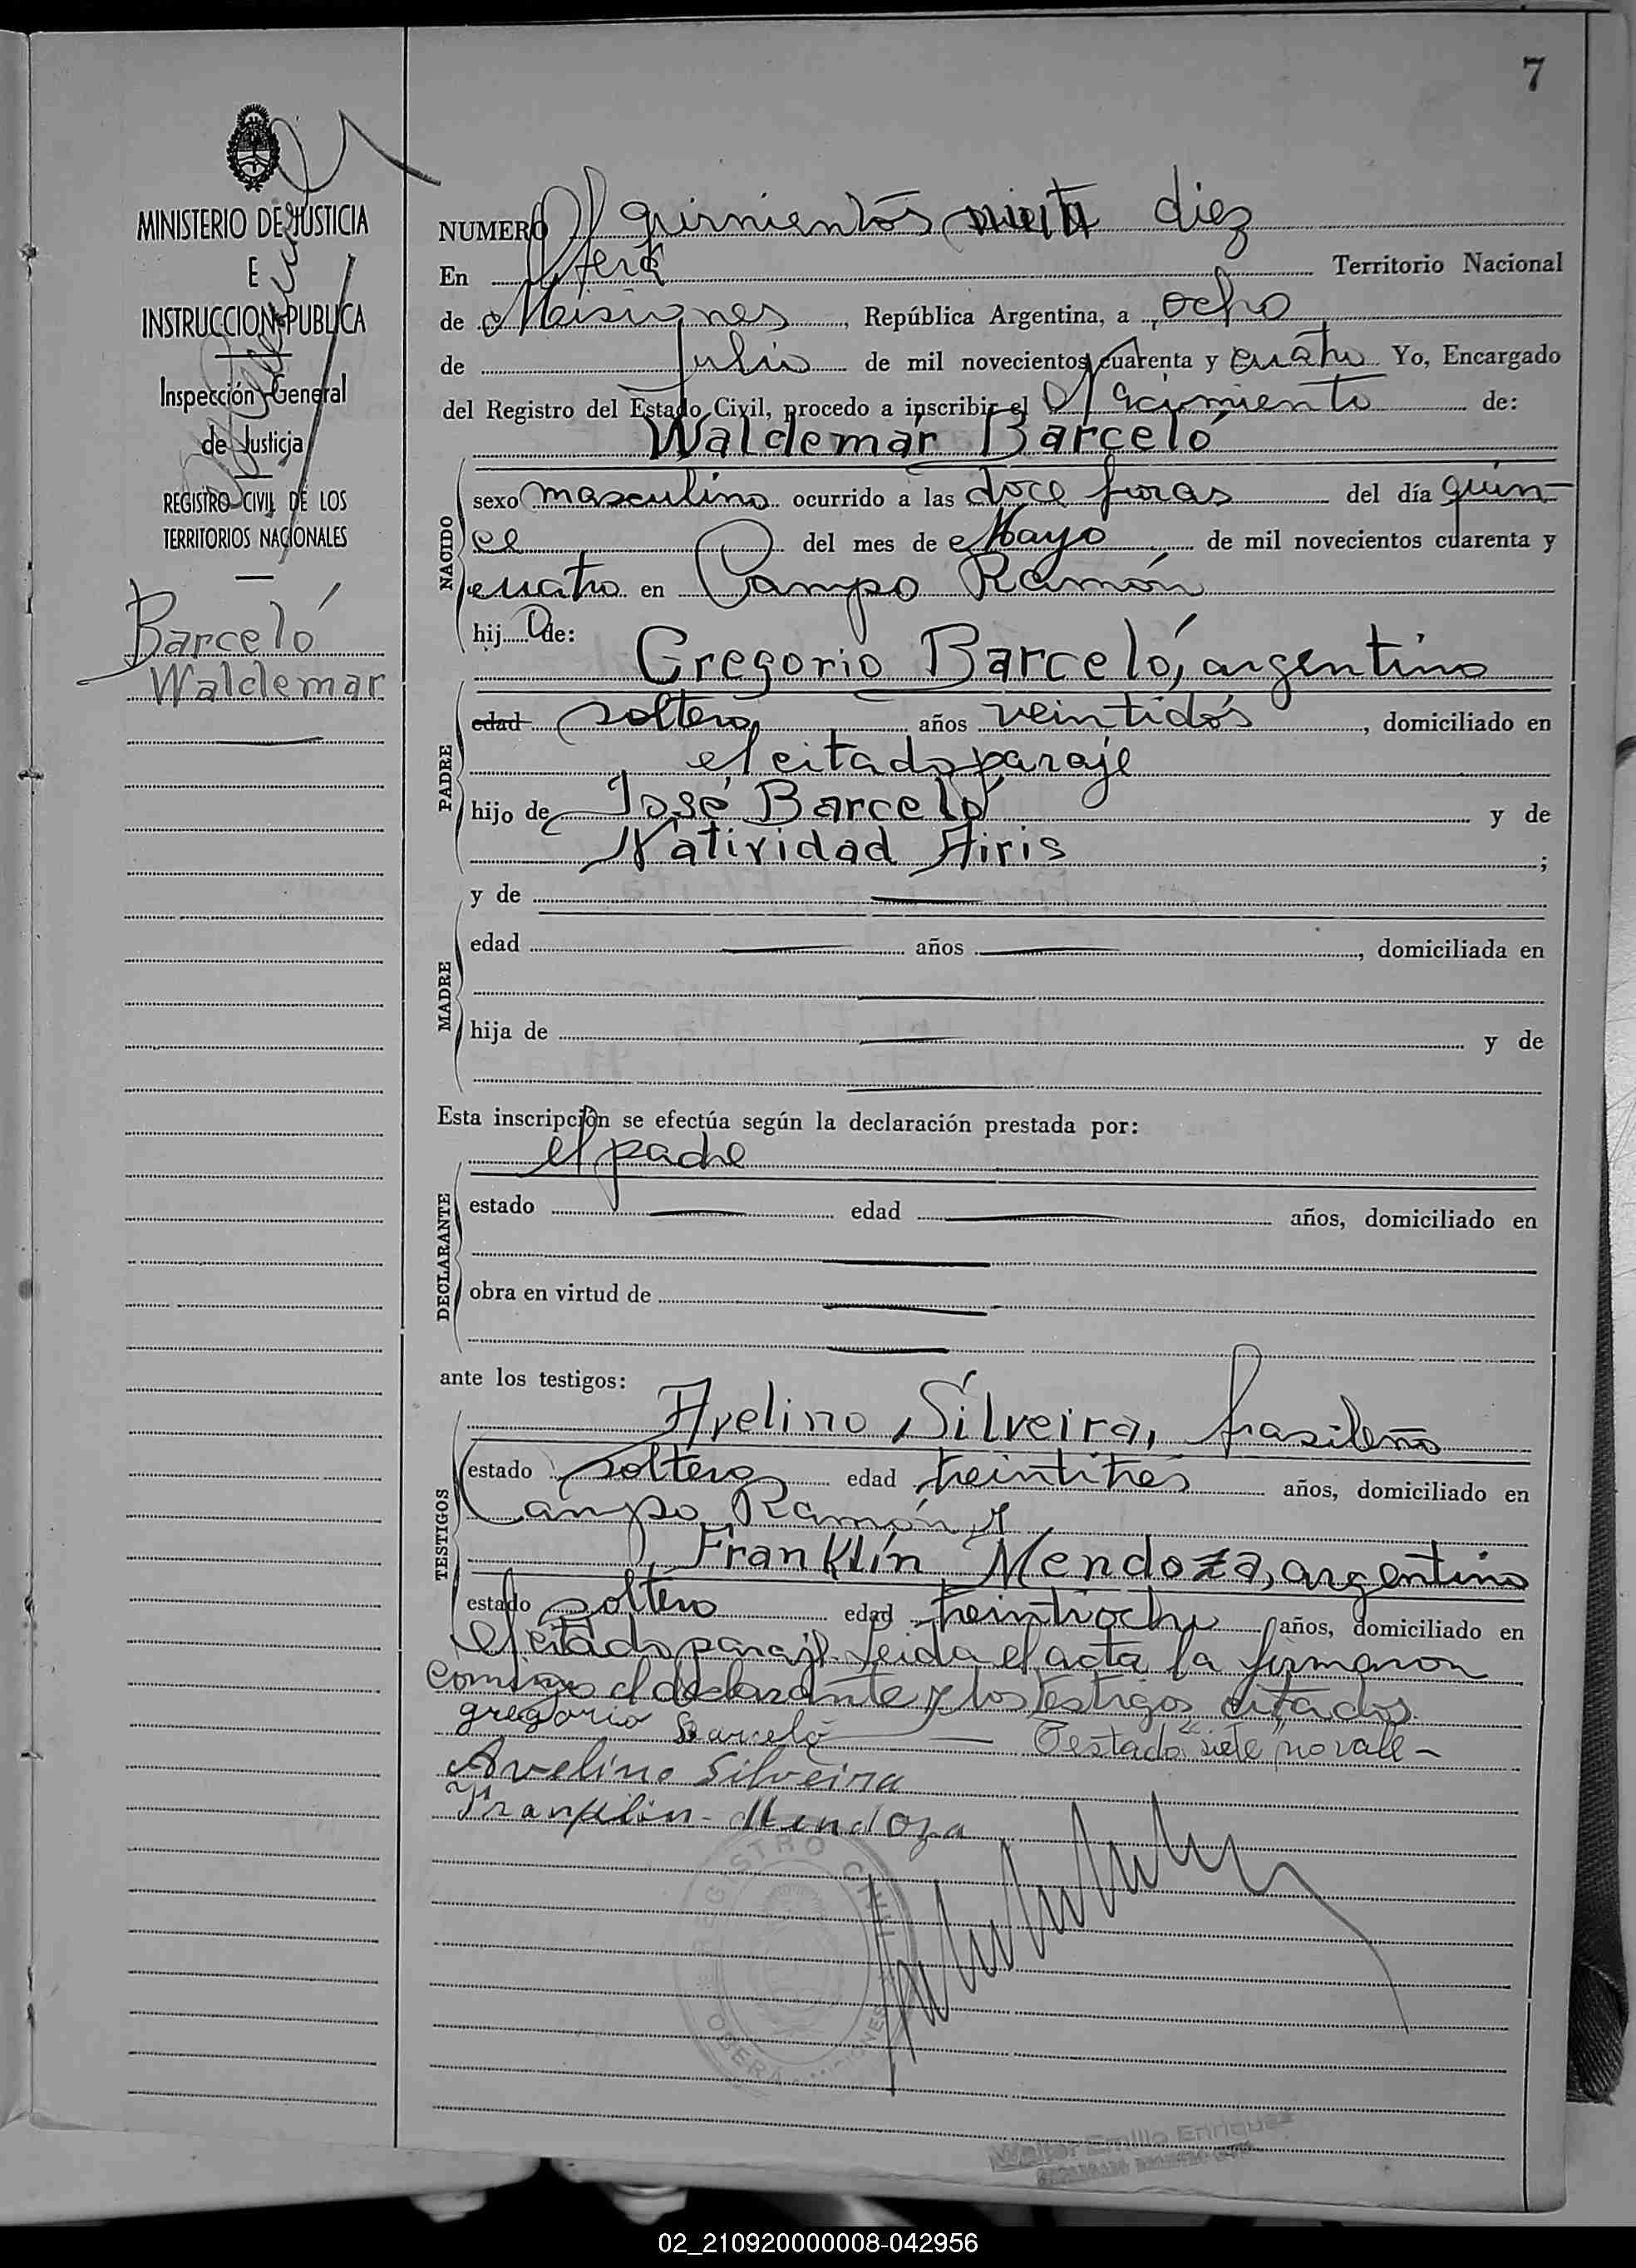 7
MINISTERIO DE JUSTICIA
E
INSTRUCCION PUBLICA
Inspección General
de Justicia
REGISTRO CIVIL DE LOS
TERRITORIOS NACIONALES
Barceló
Waldemar
NUMERO quinientos diez
En Oberá Territorio Nacional
de Misiones, República Argentina, a ocho
de Julio de mil novecientos cuarenta y cuatro Yo, Encargado
del Registro del Estado Civil, procedo a inscribir el Nacimiento de:
Waldemar Barceló
NACIDO
sexo masculino ocurrido a las doce horas del día quin-
ce del mes de Mayo de mil novecientos cuarenta y
cuatro en Campo Ramón
hijo de:
Gregorio Barceló, argentino
PADRE
edad soltero años veintidós, domiciliado en
el citado paraje
hijo de José Barceló y de
Natividad Airis;
y de
MADRE
edad años, domiciliada en
hija de y de
Esta inscripción se efectúa según la declaración prestada por:
el padre
DECLARANTE
estado edad años, domiciliado en
obra en virtud de
ante los testigos:
Avelino Silveira, brasileño
TESTIGOS
estado soltero edad treintitrés años, domiciliado en
Campo Ramón y
Franklín Mendoza, argentino
estado soltero edad treintiocho años, domiciliado en
el citado paraje. Leida el acta la firmaron
conmigo el declarante y los testigos citados.
gregorio Barceló — Testado: "siete" no vale -
Avelino Silveira
Franklin - Mendoza
REGISTRO CIVIL
OBERA MISIONES
Walter Emilio Enriquez
02_210920000008-042956